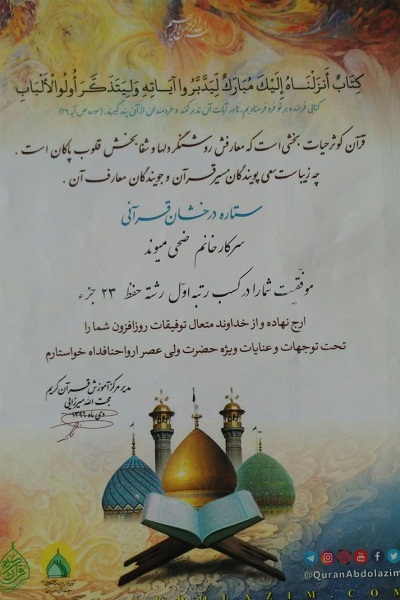 كِتَابٌ أَنزَلْنَاهُ إِلَيْكَ مُبَارَكٌ لِيَدَّبَّرُوا آيَاتِهِ وَلِيَتَذَكَّرَ أُولُوا الْأَلْبَابِ
کتابی فرخنده بر تو فرو فرستادیم، تا در آیات آن تدبر کنند و خردمندان از آن پند گیرند. (سوره ص آیه ۲۹)
قرآن کوثر حیات بخشی است که معارفش روشنگر دلها و شفابخش قلوب پاکان است .
چه زیباست سعی پویندگان سیر قرآن و جویندگان معارف آن .
ستاره درخشان قرآنی
سرکار خانم ضحی میوند
موفقیت شما را در کسب رتبه اول رشته حفظ ۲۳ جزء
ارج نهاده و از خداوند متعال توفیقات روزافزون شما را
تحت توجهات و عنایات ویژه حضرت ولی عصر ارواحنا فداه خواستارم
مدیر مرکز آموزش قرآن کریم
حجت الله میرزایی
دی ماه ۱۳۹۶
@QuranAbdolazim